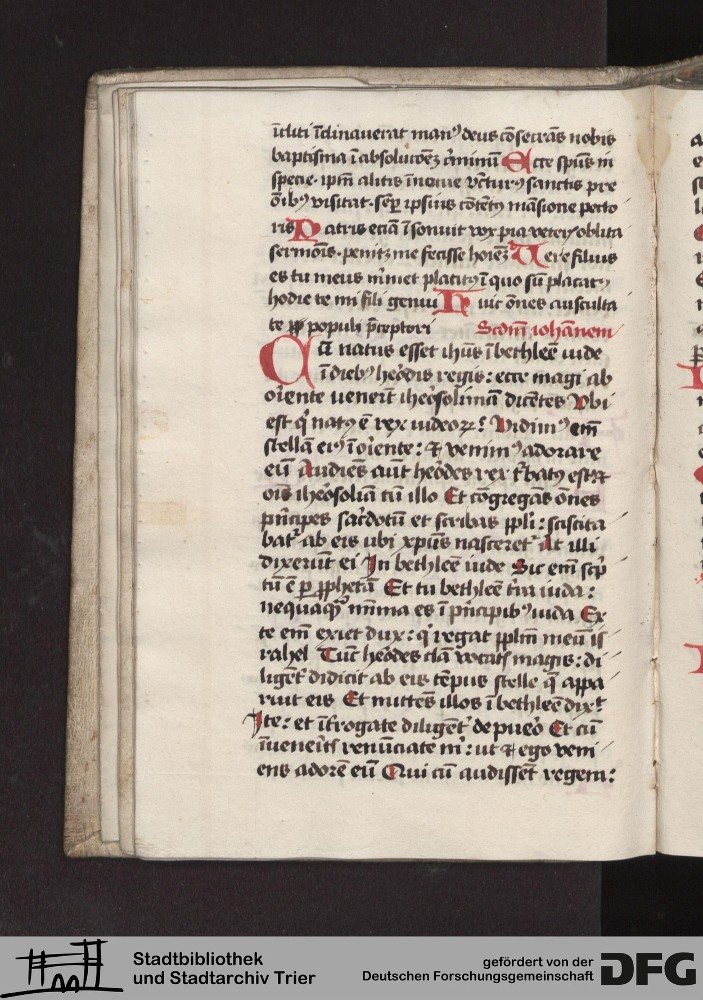 īcliti īclinauerat manꝰ deus cōsecrās nobis
baptisma ī absolucōeʒ crīminū Ecce spūs in
specie· ipm̄ alitis īniciue vēturꝰ sanctis pre
ōibꝰ visitat· sēꝑ ipsius cōtētꝰ māsione pecto
ris Patris eciā īsonuit vox pia veterꝭ oblita
sermōis· penitꝫ me fecisse hoīeʒ Uere filius
es tu meus mīmet placitꝰ ī quo sū placatꝰ
hodie te mi fili genui Huic ōnes ausculta
te ꝓ populi p̄ceptori Scdm̄ iohānem
Cū natus esset ihūs ī bethleē iude
ī diebꝰ heōdis regis: ecce magi ab
oīente uenerūt iheosolimā dicētes Vbi
est q̄ natꝰ ē rex iudeoꝝ? Vidimꝰ em̄
stellā eiꝰ ī oīente: ⁊ venimꝰ adorare
eū Audiēs aūt heōdes rex t̄batꝰ est ⁊
oīs iheosolīa cū illo Et cōgregās ōnes
pīncipes sac̄dotū et scribas ppl̄i: sciscita
bat᷑ ab eis ubi xpūs nasceret᷑ At illi
dixerūt ei In bethleē iude Sic em̄ scp̄
tū ē ꝑ ꝓphetā Et tu bethleē t̄ra iuda:
nequaqꝫ mīma es ī pīncipibꝰ iuda Ex
te em̄ exiet dux: q̄ regat pplm̄ meū is
rahel Tūc heōdes clā vocatꝭ magis: di
ligēt᷑ didicit ab eis tēpus stelle q̄ appa
ruit eis Et mittēs illos ī bethleē dix?
Ite: et īt̄rogate diligēt᷑ de pueō Et cū
īuenēitꝭ renūciate m̄: ut ⁊ ego veni
ens adorē eū Qui cū audissēt regem:
Stadtbibliothek
und Stadtarchiv Trier
gefördert von der
Deutschen Forschungsgemeinschaft
DFG